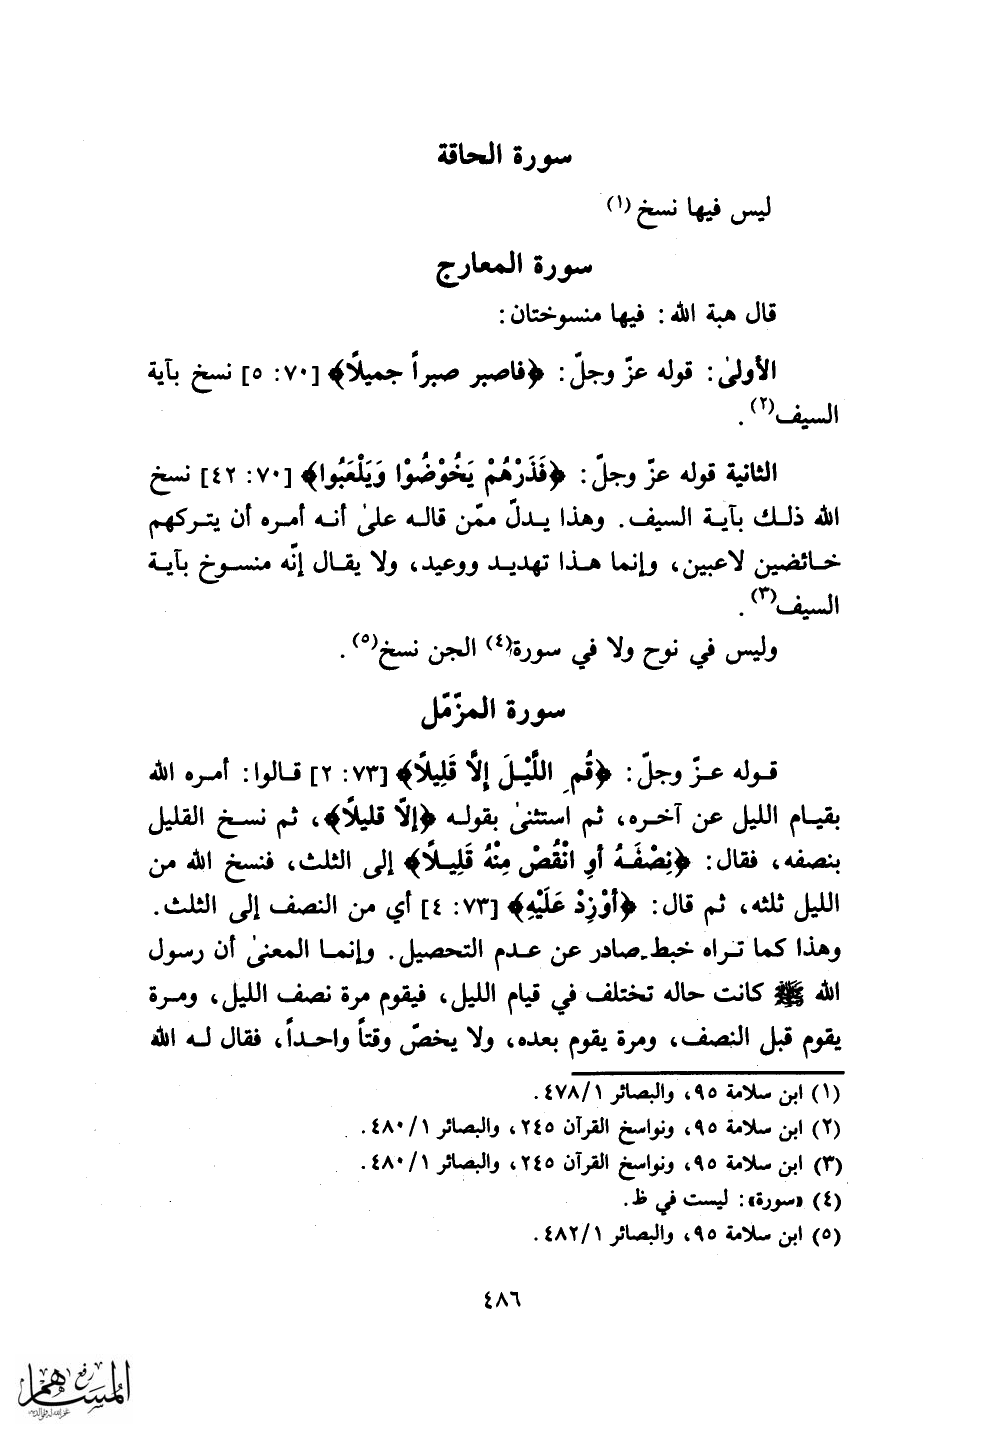 سورة الحاقة
ليس فيها نسخ (١)
سورة المعارج
قال هبة الله : فيها منسوختان :
الأولىٰ : قوله عزّ وجلّ : ﴿فاصبر صبراً جميلاً﴾ [٧٠ : ٥] نسخ بآية
السيف(٢) .
الثانية قوله عزّ وجلّ : ﴿فَذَرْهُمْ يَخُوْضُوْا وَيَلْعَبُوا﴾ [٧٠ : ٤٢] نسخ
الله ذلك بآية السيف . وهذا يدلّ ممّن قاله علىٰ أنه أمره أن يتركهم
خائضين لاعبين ، وإنما هذا تهديد ووعيد ، ولا يقال إنّه منسوخ بآية
السيف(٣) .
وليس في نوح ولا في سورة(٤) الجن نسخ(٥) .
سورة المزّمّل
قوله عزّ وجلّ : ﴿قُمِ اللَّيْلَ إِلَّا قَلِيلًا﴾ [٧٣ : ٢] قالوا : أمره الله
بقيام الليل عن آخره ، ثم استثنىٰ بقوله ﴿إلّا قليلاً﴾ ، ثم نسخ القليل
بنصفه ، فقال : ﴿نِصْفَهُ أَوِ انْقُصْ مِنْهُ قَلِيلًا﴾ إلى الثلث ، فنسخ الله من
الليل ثلثه ، ثم قال : ﴿أَوْزِدْ عَلَيْهِ﴾ [٧٣ : ٤] أي من النصف إلى الثلث .
وهذا كما تراه خبط صادر عن عدم التحصيل . وإنما المعنىٰ أن رسول
الله ﷺ كانت حاله تختلف في قيام الليل ، فيقوم مرة نصف الليل ، ومرة
يقوم قبل النصف ، ومرة يقوم بعده ، ولا يخصّ وقتاً واحداً ، فقال له الله
(١) ابن سلامة ٩٥ ، والبصائر ١/ ٤٧٨ .
(٢) ابن سلامة ٩٥ ، ونواسخ القرآن ٢٤٥ ، والبصائر ١/ ٤٨٠ .
(٣) ابن سلامة ٩٥ ، ونواسخ القرآن ٢٤٥ ، والبصائر ١/ ٤٨٠ .
(٤) «سورة» : ليست في ظ .
(٥) ابن سلامة ٩٥ ، والبصائر ١/ ٤٨٢ .
٤٨٦
رفع
المساهم